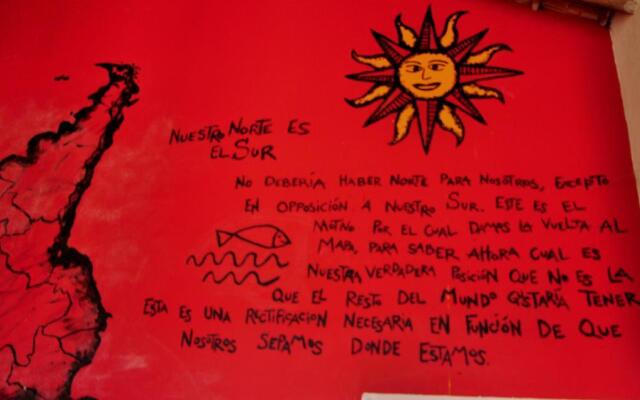 NUESTRO NORTE ES
EL SUR
NO DEBERÍA HABER NORTE PARA NOSOTROS, EXCEPTO
EN OPOSICIÓN A NUESTRO SUR. ESTE ES EL
MOTIVO POR EL CUAL DAMOS LA VUELTA AL
MAPA, PARA SABER AHORA CUAL ES
NUESTRA VERDADERA POSICIÓN QUE NO ES LA
QUE EL RESTO DEL MUNDO QISTARÍA TENER
ESTA ES UNA RECTIFICACION NECESARIA EN FUNCIÓN DE QUE
NOSOTROS SEPAMOS DONDE ESTAMOS.